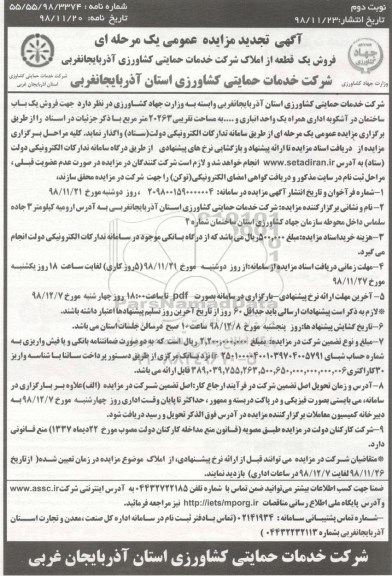 نوبت دوم
شماره نامه : ۵۵/۵۵/۹۸/۳۳۷۴
تاریخ انتشار:۹۸/۱۱/۲۳
تاریخ نامه: ۹۸/۱۱/۲۰
آگهی تجدید مزایده عمومی یک مرحله ای
فروش یک قطعه از املاک شرکت خدمات حمایتی کشاورزی آذربایجانغربی
شرکت خدمات حمایتی کشاورزی استان آذربایجانغربی
وزارت جهاد کشاورزی
شرکت خدمات حمایتی کشاورزی
استان آذربایجان غربی
شرکت خدمات حمایتی کشاورزی استان آذربایجانغربی وابسته به وزارت جهاد کشاورزی در نظر دارد جهت فروش یک باب
ساختمان در آشکویه اداری همراه یک واحد انباری و .... به مساحت تقریبی ۲۰۲۶۳ متر مربع با ذکر جزئیات در اسناد را از طریق
برگزاری مزایده عمومی یک مرحله ای از طریق سامانه تدارکات الکترونیکی دولت (ستاد) واگذار نماید. کلیه مراحل برگزاری
مزایده از دریافت اسناد مزایده تا ارائه پیشنهاد و بازگشایی نرخ های پیشنهادی از طریق درگاه سامانه تدارکات الکترونیکی دولت
(ستاد) به آدرس www.setadiran.ir انجام خواهد شد و لازم است شرکت کنندگان در مزایده در صورت عدم عضویت قبلی ،
مراحل ثبت نام در سایت مذکور و دریافت گواهی امضای الکترونیکی (توکن) را جهت شرکت در مزایده محقق سازند.
۱-شماره فراخوان و تاریخ انتشار آگهی مزایده در سامانه: ، روز دوشنبه مورخ ۹۸/۱۱/۲۱
۲-نام و نشانی برگزار کننده مزایده: شرکت خدمات حمایتی کشاورزی استان آذربایجانغربی به آدرس ارومیه کیلومتر ۳ جاده
سلماس داخل محوطه سازمان جهاد کشاورزی استان ساختمان شماره ۲
۳-هزینه خرید اسناد مزایده: مبلغ ۵۰۰,۰۰۰ ریال می باشد که از درگاه بانکی موجود در سامانه تدارکات الکترونیکی دولت انجام
می گیرد.
۴-مهلت زمانی دریافت اسناد مزایده از سامانه: از روز دوشنبه مورخ ۹۸/۱۱/۲۱ (۵ روز کاری) لغایت ساعت ۱۸ روز یکشنبه
مورخ ۹۸/۱۱/۲۷
۵-آخرین مهلت ارائه نرخ پیشنهادی- بارگزاری در سامانه بصورت pdf تا ساعت ۱۸:۰۰ روز چهار شنبه مورخ ۹۸/۱۲/۷
*لازم به ذکر است پیشنهادات ارسالی باید حداقل ۶۰ روز از تاریخ آخرین روز تسلیم پیشنهادها اعتبار داشته باشند.
۶-تاریخ گشایش پیشنهادها: روز پنجشنبه مورخ ۹۸/۱۲/۸ ساعت ۱۰ صبح در سالن جلسات استان می باشد.
۷-مبلغ و نوع تضمین شرکت در مزایده: ریال است که به دو صورت ضمانتنامه بانکی و یا فیش واریزی به
شماره حساب شبای نزد بانک مرکزی از طریق دستور پرداخت ساتنا یا شناسه واریز
۳۰ کاراکتری قابل ارائه می باشد.
۸-آدرس و زمان تحویل اصل تضمین شرکت در فرآیند ارجاع کار: اصل تضمین شرکت در مزایده (الف) علاوه بر بارگزاری در
سامانه، می بایستی بصورت فیزیکی و در پاکت دربسته و ممهور ، حداکثر تا پایان وقت اداری روز چهارشنبه مورخ ۹۸/۱۲/۷ به
دبیرخانه کمیسیون معاملات برگزارکننده مزایده در آدرس فوق الذکر تحویل و رسید دریافت شود.
۹-شرکت کارکنان دولت در مزایده طبق مصوبه (قانون منع مداخله کارکنان دولت مصوب مورخ ۲۲دیماه ۱۳۳۷) منع قانونی
دارد.
*متقاضیان شرکت در مزایده می توانند قبل از ارائه نرخ پیشنهادی، از املاک موضوع مزایده در زمان تعیین شده( از تاریخ
۹۸/۱۱/۲۶ لغایت ۹۸/۱۲/۷ در ساعات اداری) بازدید نمایند.
ضمنا جهت کسب اطلاعات بیشتر می توانید ضمن تماس با شماره تلفن ۰۴۴۳۲۷۲۲۱۸۵ به آدرس اینترنتی شرکت www.assc.ir
و آدرس پایگاه ملی اطلاع رسانی مناقصات http://iets/mporg.ir نیز مراجعه فرمائید.
-شماره تماس پشتیبانی سامانه : ۰۲۱۴۱۹۳۴ (تماس با دفتر ثبت نام در سامانه اداره کل صنعت، معدن و تجارت استان
آذربایجانغربی بشماره ۰۴۴۳۲۲۳۲۱۱۳ )
شرکت خدمات حمایتی کشاورزی استان آذربایجان غربی